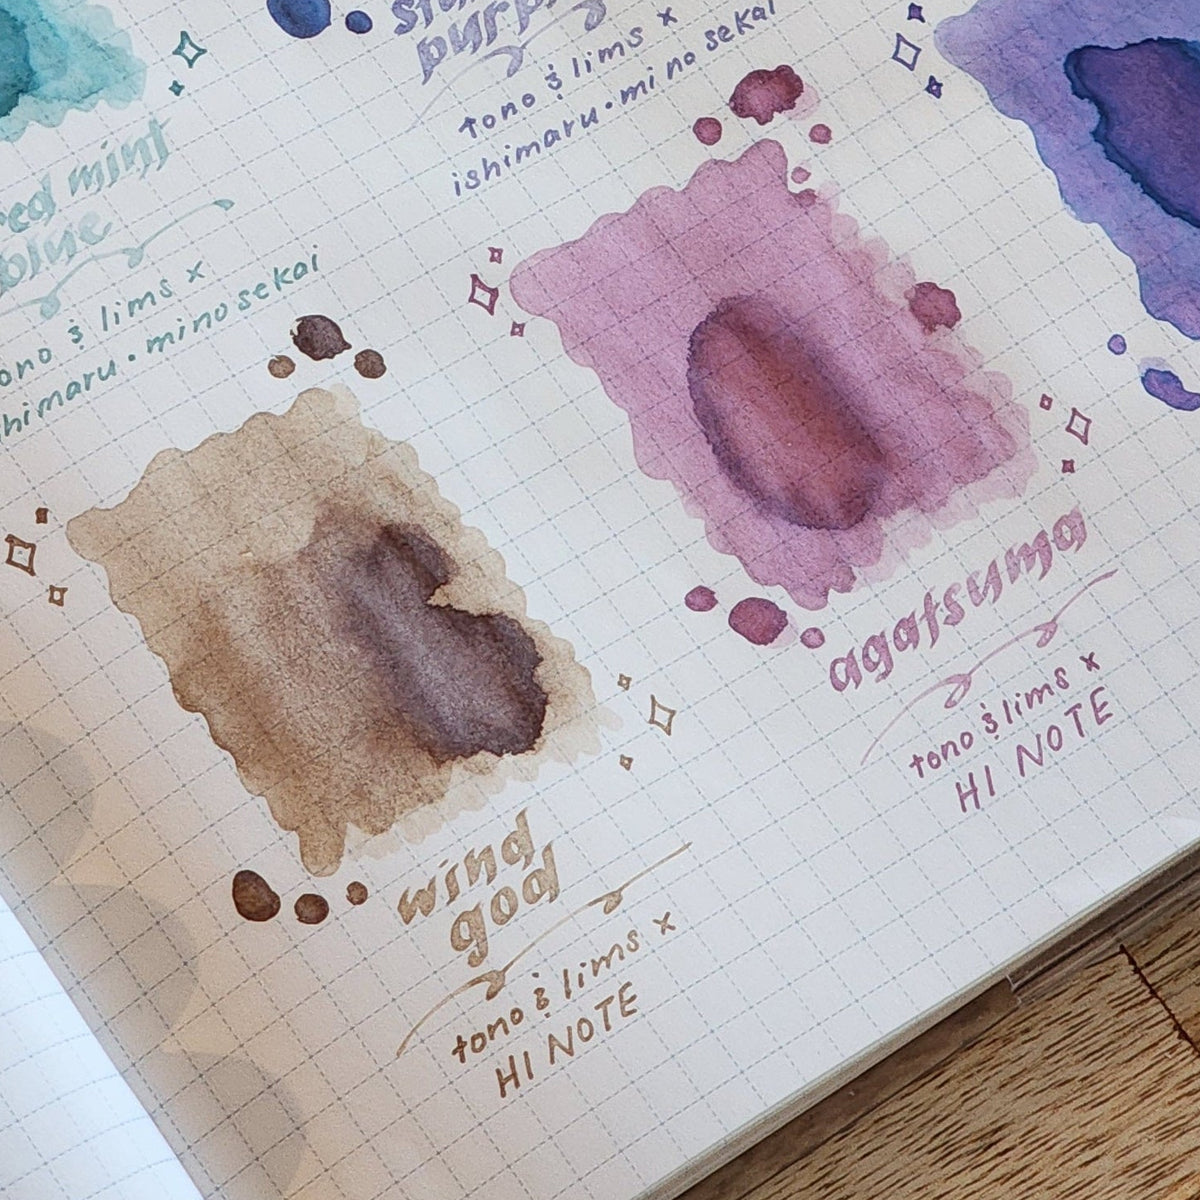 purple
tono & lims x
ishimaru・mino sekai
red mint
blue
tono & lims x
ishimaru・mino sekai
agatsuma
tono & lims x
HI NOTE
wind
god
tono & lims x
HI NOTE